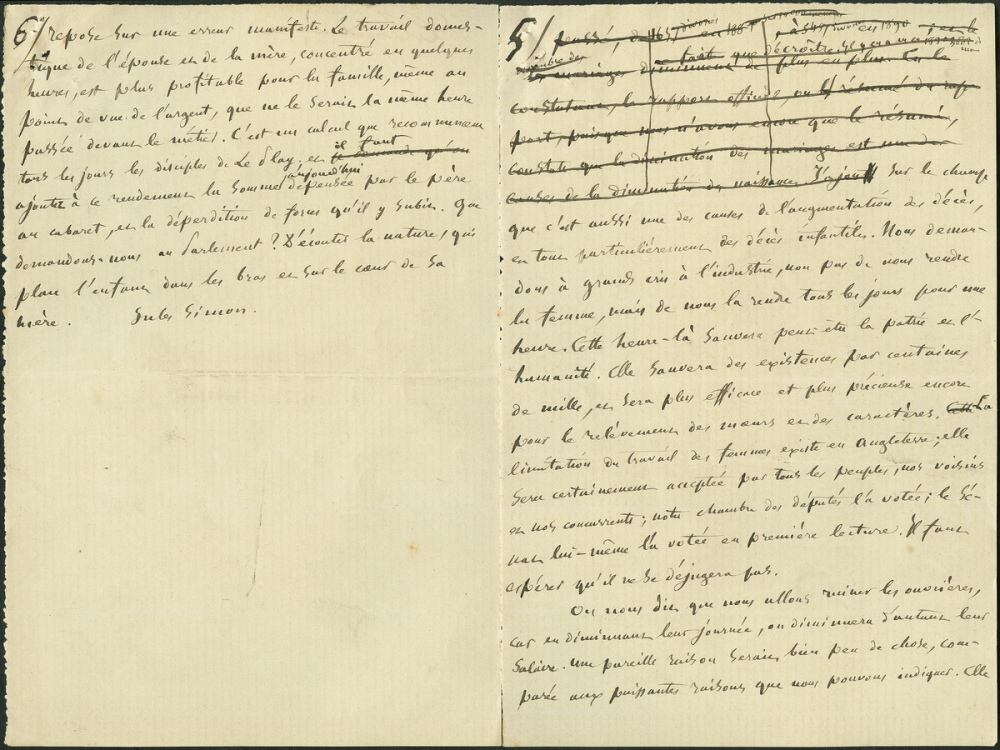 5/ passé, de 4657 divorces en 1884 à 5457 divorces en 1890 ; en le
nombre des tant que décroître
mariages diminuent de plus en plus. En le
constatant, le rapport officiel, ou le résumé du rap-
port, puisque nous n'avons encore que le résumé,
constate que la diminution des mariages est une des
causes de la diminution de naissances. J'ajoute sur le champ
que c'est aussi une des causes de l'augmentation des décès,
en tout particulièrement des décès infantiles. Nous deman-
dons à grands cris à l'industrie, non pas de nous rendre
la femme, mais de nous la rendre tous les jours pour une
heure. Cette heure-là sauvera peut-être la patrie et l'-
humanité. Elle sauvera des existences par centaines
de mille, et sera plus efficace et plus précieuse encore
pour le relèvement des mœurs et des caractères. Cette La
limitation du travail des femmes existe en Angleterre ; elle
sera certainement acceptée par tous les peuples, nos voisins
et nos concurrents ; notre chambre des députés l'a votée ; le Sé-
nat lui-même l'a votée en première lecture. Il faut
espérer qu'il ne se déjugera pas.
On nous dit que nous allons ruiner les ouvrières,
car en diminuant leur journée, on diminuera d'autant leur
salaire. Une pareille raison serait bien peu de chose, com-
parée aux puissantes raisons que nous pouvons indiquer. Elle
6/ repose sur une erreur manifeste. Le travail domes-
tique de l'épouse et de la mère, concentré en quelques
heures, est plus profitable pour la famille, même au
point de vue de l'argent, que ne le serait la même heure
passée devant le métier. C'est un calcul que recommencent
tous les jours les disciples de Le Play ; et il faut
ajouter à ce rendement la somme aujourd'hui dépensée par le père
au cabaret, et la déperdition de forces qu'il y subit. Que
demandons-nous au Parlement ? D'écouter la nature, qui
place l'enfant dans les bras et sur le cœur de sa
mère. Jules Simon.